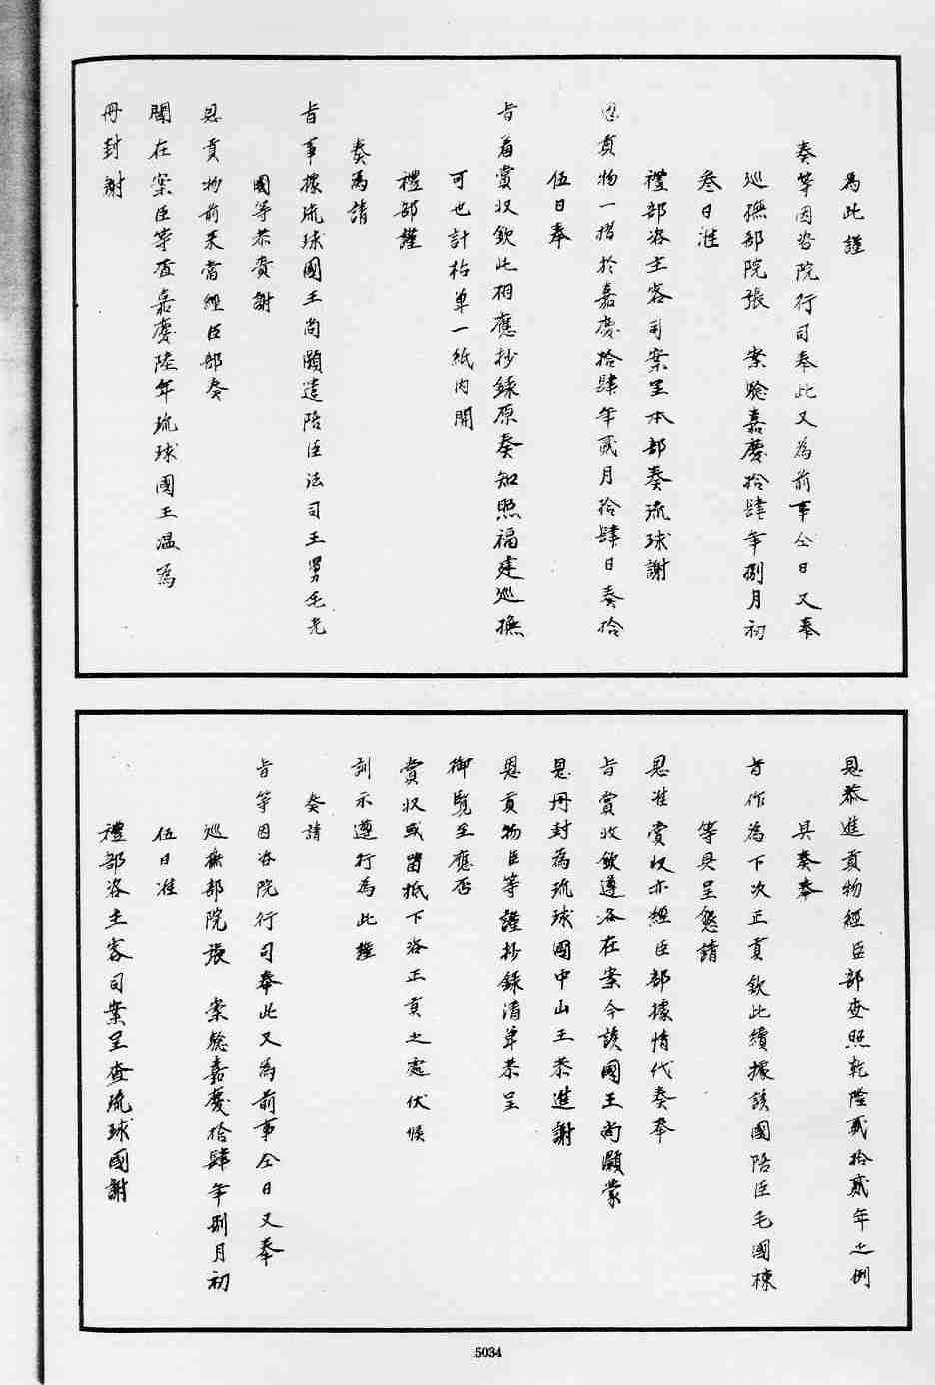 為此謹
奏等因咨院行司奉此又為前事仝日又奉
巡撫部院張　案驗嘉慶拾肆年捌月初
叁日准
禮部咨主客司案呈本部奏琉球謝
恩貢物一摺於嘉慶拾肆年貳月拾肆日奏拾
伍日奉
旨着賞收欽此相應抄錄原奏知照福建巡撫
可也計粘單一紙内開
禮部謹
奏為請
旨事據琉球國王尚顥遣陪臣法司王舅毛光
國等恭賫謝
恩貢物前來當經臣部奏
聞在案臣等查嘉慶陸年琉球國王温為
冊封謝
恩恭進貢物經臣部查照乾隆貳拾貳年之例
具奏奉
旨作為下次正貢欽此續據該國陪臣毛國棟
等具呈懇請
恩准賞收亦經臣部據情代奏奉
旨賞收欽遵咨在案今該國王尚顥蒙
恩冊封為琉球國中山王恭進謝
恩貢物臣等謹抄錄清單恭呈
御覽至應否
賞收或留抵下次正貢之處伏候
訓示遵行為此謹
奏請
旨等因咨院行司奉此又為前事仝日又奉
巡撫部院張　案驗嘉慶拾肆年捌月初
伍日准
禮部咨主客司案呈查琉球國謝
5034